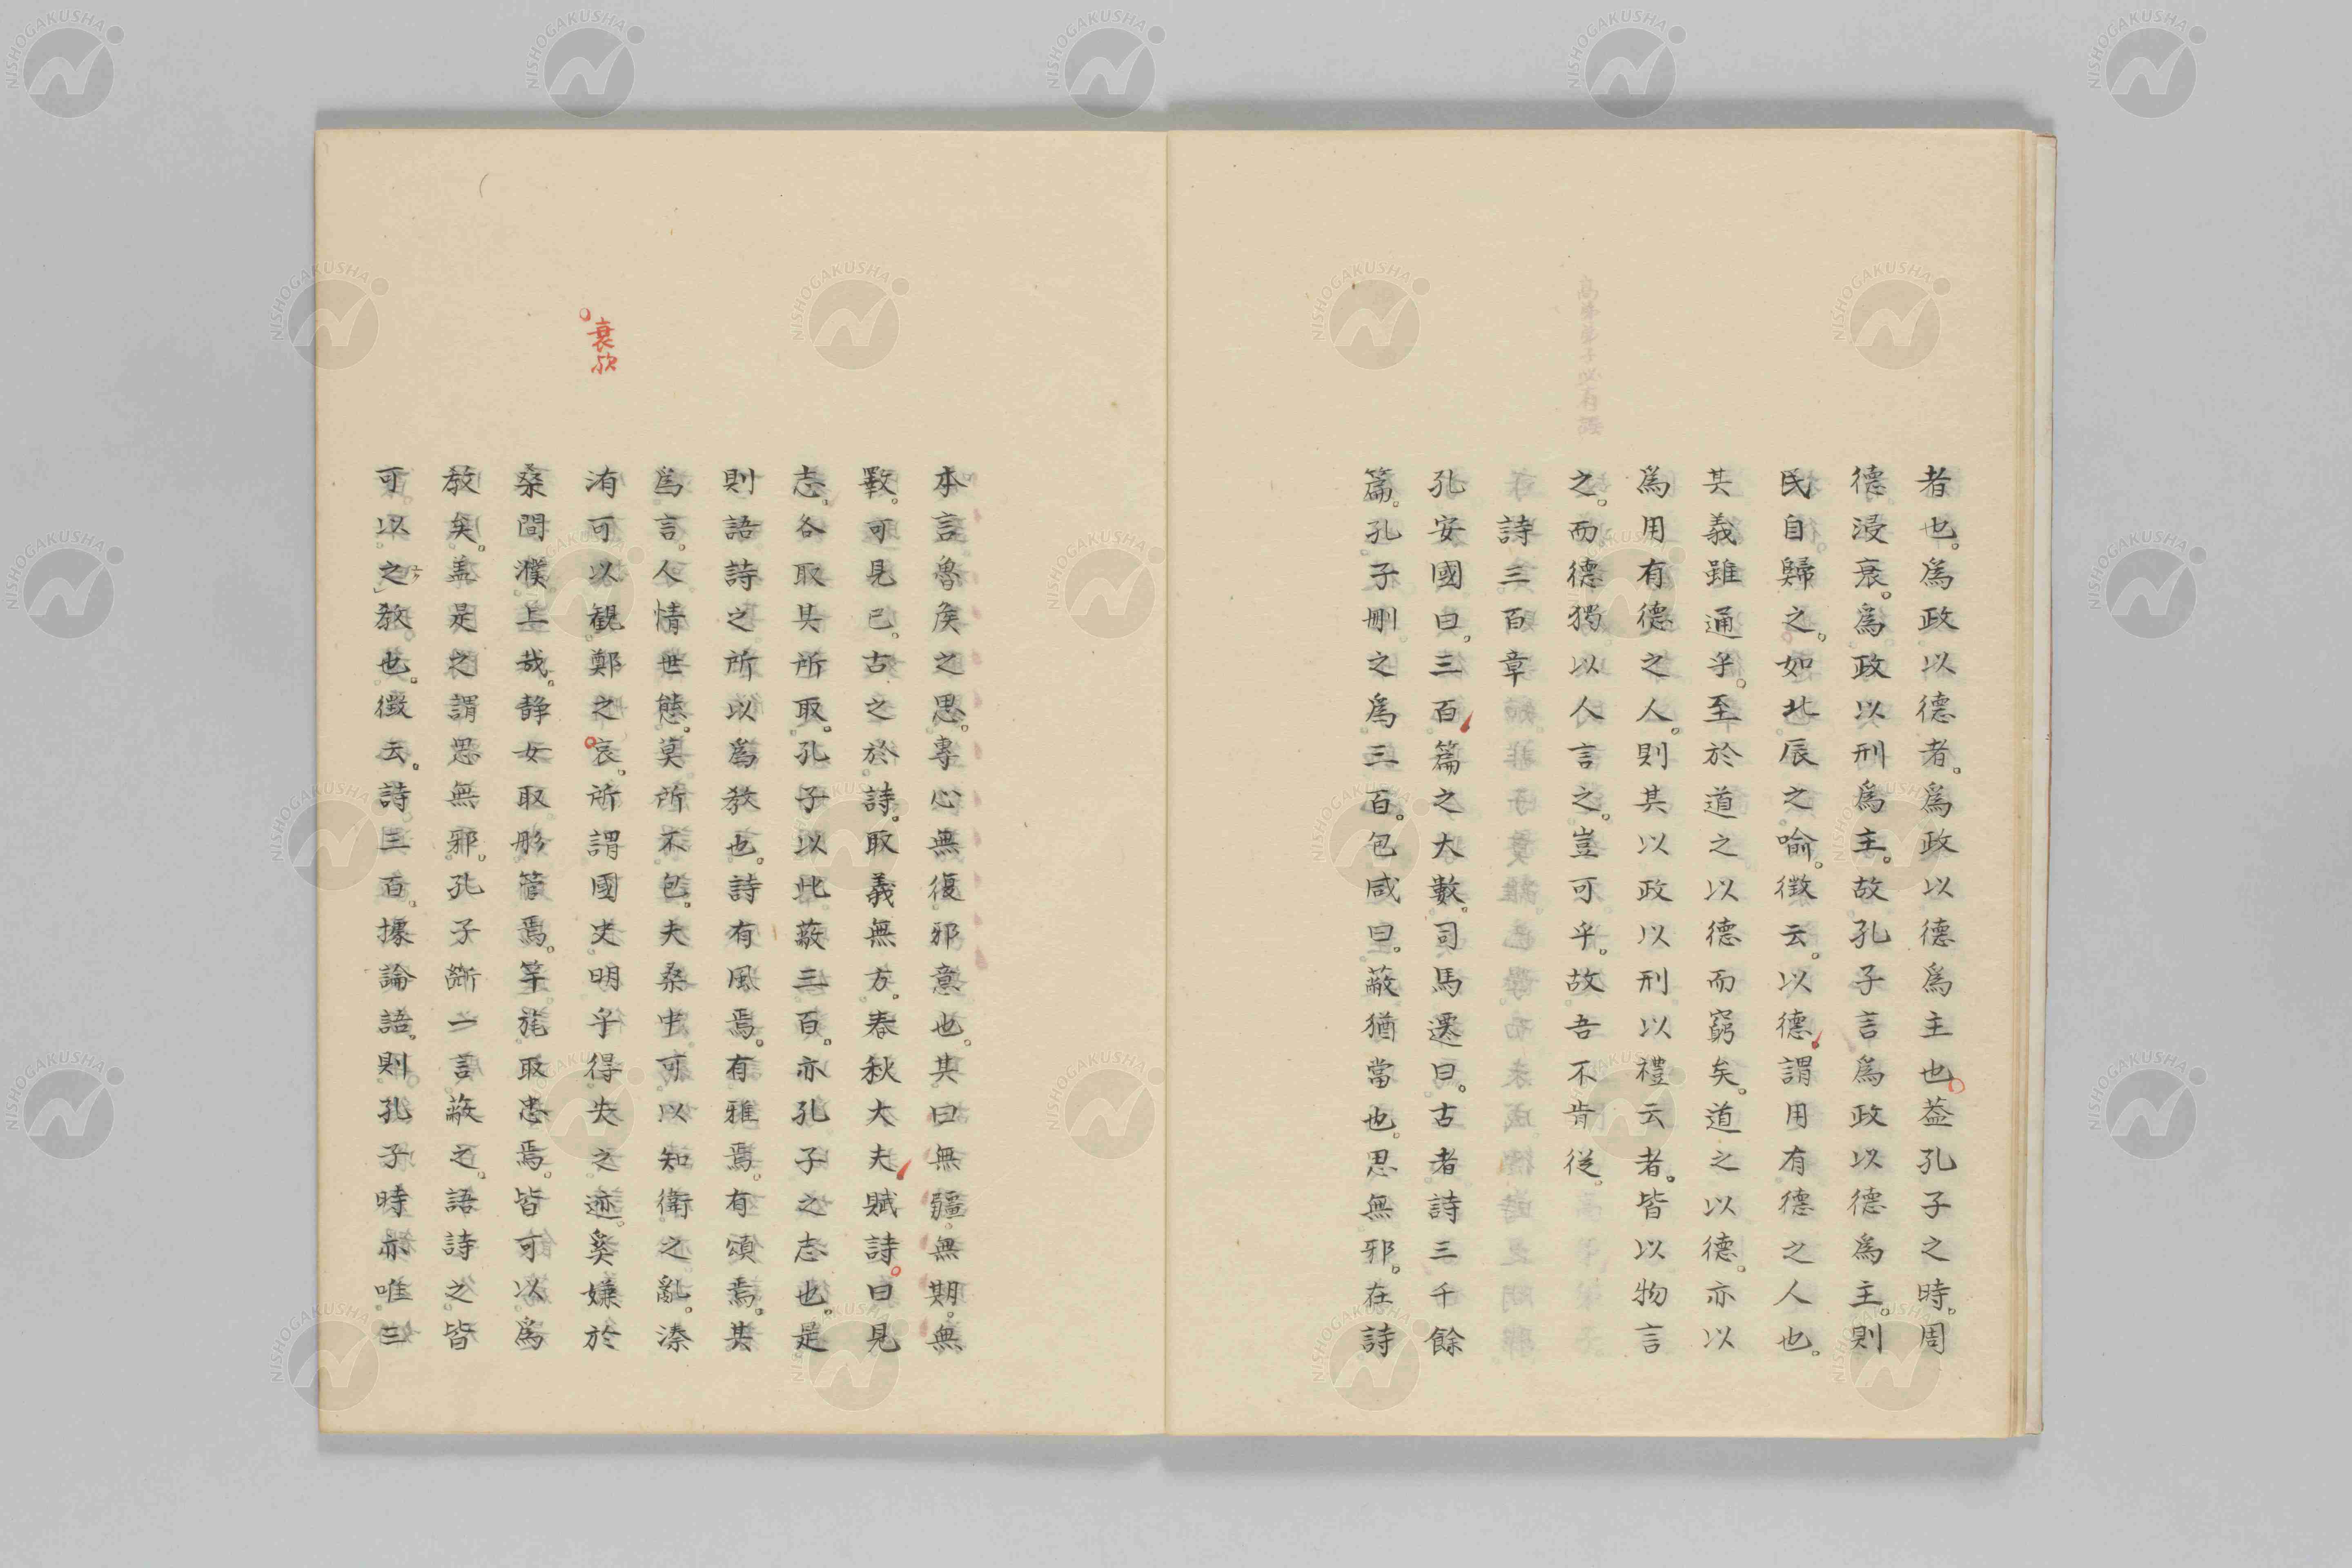 者也。爲政以德者。爲政以德爲主也。葢孔子之時。周
德浸衰。爲政以刑爲主。故孔子言爲政以德爲主。則
民自歸之。如北辰之喻。徴云。以德謂用有德之人也。
其義雖通乎。至於道之以德而窮矣。道之以德。亦以
爲用有德之人。則其以政以刑以禮云者。皆以物言
之。而德獨以人言之。豈可乎。故吾不肯從。
詩三百章
孔安國曰。三百篇之大數。司馬遷曰。古者詩三千餘
篇。孔子刪之爲三百。包咸曰。蔽猶當也。思無邪。在詩
本言魯矦之思。專心無復邪意也。其曰無疆。無期。無
斁。可見已。古之於詩。取義無方。春秋大夫賦詩。曰見
志。各取其所取。孔子以此蔽三百。亦孔子之志也。是
則語詩之所以爲教也。詩有風焉。有雅焉。有頌焉。其
爲言。人情世態。莫所不包。夫桑中可以知衛之亂。溱
洧可以観鄭之哀。所謂國史明乎得失之迹。奚嫌於
桑間濮上哉。静女取彤管焉。竿旄取忠焉。皆可以爲
教矣。葢是之謂思無邪。孔子斷一言蔽之。語詩之皆
可以之教也。徴云。詩三百。據論語。則孔子時亦唯三
衰欤
NISHOGAKUSHA